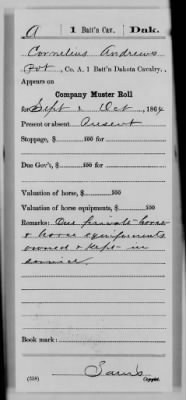 A | 1 Batt'n Cav. | Dak.
Cornelius Andrews
Pvt, Co. A, 1 Batt'n Dakota Cavalry.
Appears on
Company Muster Roll
for Sept & Oct, 1864
Present or absent Present
Stoppage, $ 100 for
Due Gov't, $ 100 for
Valuation of horse, $ 100
Valuation of horse equipments, $ 100
Remarks: One private horse
& horse equipments
owned & kept in
service.
Book mark:
(358)
Copyist.